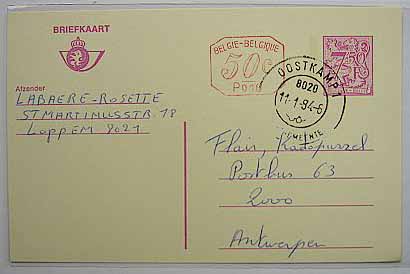 BRIEFKAART
Afzender
LABAERE-ROSETTE
ST MARTINUSSTR. 18
LOPPEM 8021
BELGIE-BELGIQUE
50c
P010
OOSTKAMP 1
8020
11-1-94-6
Flair, Kadopuzzel
Postbus 63
2000
Antwerpen